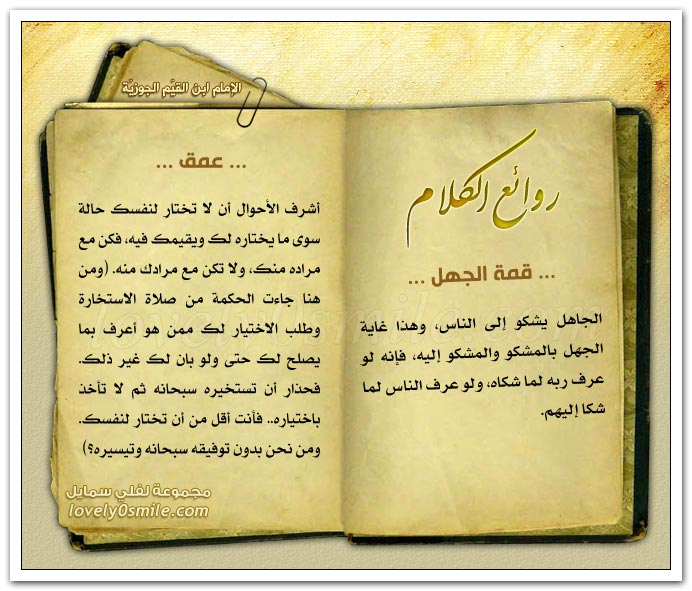 الإمام ابن القيّم الجوزيّة
روائع الكلام
... قمة الجهل ...
الجاهل يشكو إلى الناس، وهذا غاية
الجهل بالمشكو والمشكو إليه، فإنه لو
عرف ربه لما شكاه، ولو عرف الناس لما
شكا إليهم.
... عمق ...
أشرف الأحوال أن لا تختار لنفسك حالة
سوى ما يختاره لك ويقيمك فيه، فكن مع
مراده منك، ولا تكن مع مرادك منه. (ومن
هنا جاءت الحكمة من صلاة الاستخارة
وطلب الاختيار لك ممن هو أعرف بما
يصلح لك حتى ولو بان لك غير ذلك.
فحذار أن تستخيره سبحانه ثم لا تأخذ
باختياره.. فأنت أقل من أن تختار لنفسك.
ومن نحن بدون توفيقه سبحانه وتيسيره؟)
مجموعة لفلي سمايل
lovely0smile.com
lovely0smile